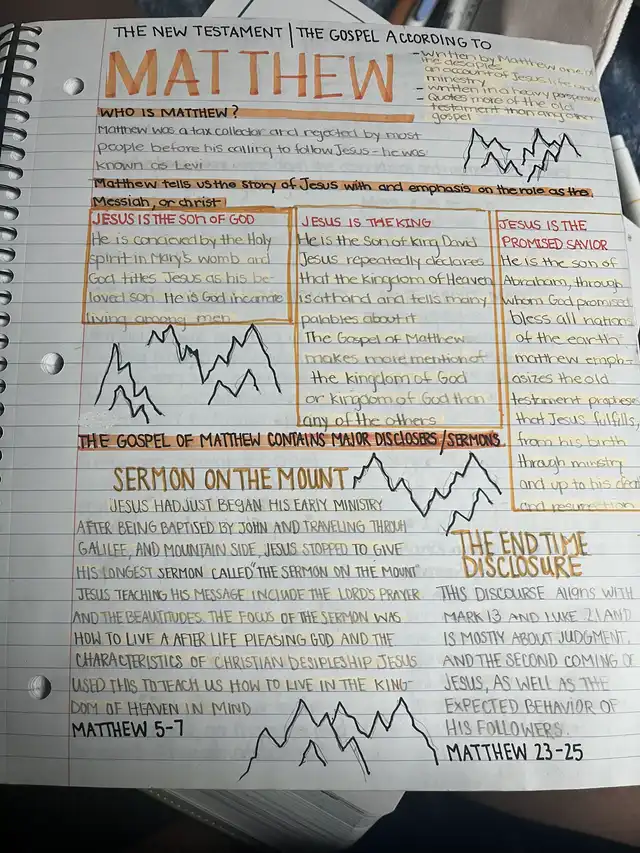 THE NEW TESTAMENT | THE GOSPEL ACCORDING TO
MATTHEW
- written by Matthew one of
the desciples
an account of Jesus life and
ministry
- written in a heavy
- Quotes more of the old
testament than any other
gospel
WHO IS MATTHEW?
Matthew was a tax collector and rejected by most
people before his calling to follow Jesus - he was
known as Levi
Matthew tells us the story of Jesus with and emphasis on the role as the
Messiah, or christ
JESUS IS THE SON OF GOD
He is concieved by the Holy
spirit in Mary's womb and
God titles Jesus as his be-
loved son. He is God incarnate
living among men
JESUS IS THE KING
He is the Son of King David
Jesus repeatedly declares
that the kingdom of Heaven
is at hand and tells many
parables about it
The Gospel of Matthew
makes more mention of
the kingdom of God
or kingdom of God than
any of the others
JESUS IS THE
PROMISED SAVIOR
He is the son of
Abraham, through
whom God promised
bless all nation
of the earth
matthew emph-
asizes the old
testament prophese
that Jesus fulfills,
from his birth
through ministry
and up to his death
and resurrection
THE GOSPEL OF MATTHEW CONTAINS MAJOR DISCLOSERS/SERMONS
SERMON ON THE MOUNT
JESUS HAD JUST BEGAN HIS EARLY MINISTRY
AFTER BEING BAPTISED BY JOHN AND TRAVELING THROUGH
GALILEE, AND MOUNTAIN SIDE, JESUS STOPPED TO GIVE
HIS LONGEST SERMON CALLED "THE SERMON ON THE MOUNT"
JESUS TEACHING HIS MESSAGE INCLUDE THE LORD'S PRAYER
AND THE BEAUTITUDES. THE FOCUS OF THE SERMON WAS
HOW TO LIVE A AFTER LIFE PLEASING GOD AND THE
CHARACTERISTICS OF CHRISTIAN DESIPLESHIP JESUS
USED THIS TO TEACH US HOW TO LIVE IN THE KING-
DOM OF HEAVEN IN MIND
MATTHEW 5-7
THE END TIME
DISCLOSURE
THIS DISCOURSE Aligns WITH
MARK 13 AND LUKE 21 AND
IS MOSTLY ABOUT JUDGMENT.
AND THE SECOND COMING OF
JESUS, AS WELL AS THE
EXPECTED BEHAVIOR OF
HIS FOLLOWERS.
MATTHEW 23-25